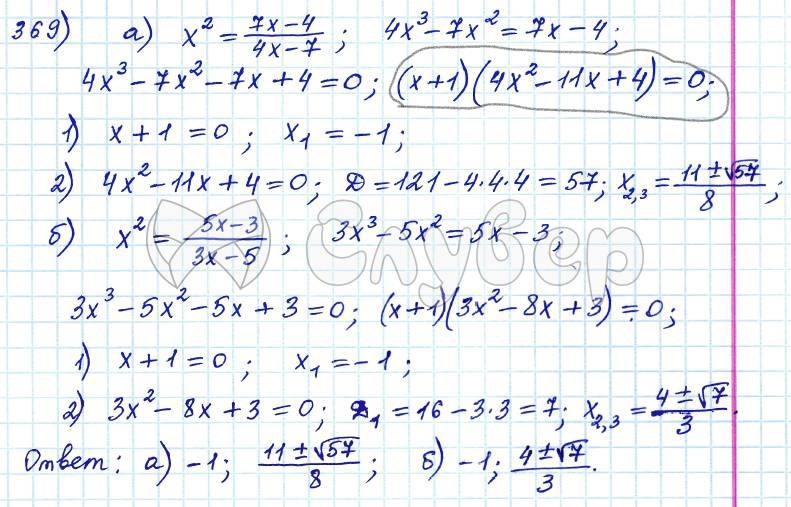 369) а) x² = (7x-4)/(4x-7); 4x³-7x² = 7x-4;
4x³-7x²-7x+4=0; (x+1)(4x²-11x+4)=0;
1) x+1=0; x₁=-1;
2) 4x²-11x+4=0; D=121-4·4·4=57; x₂,₃=(11±√57)/8;
б) x² = (5x-3)/(3x-5); 3x³-5x²=5x-3;
Спувер
3x³-5x²-5x+3=0; (x+1)(3x²-8x+3)=0;
1) x+1=0; x₁=-1;
2) 3x²-8x+3=0; D₁=16-3·3=7; x₂,₃=(4±√7)/3.
Ответ: а) -1; (11±√57)/8; б) -1; (4±√7)/3.